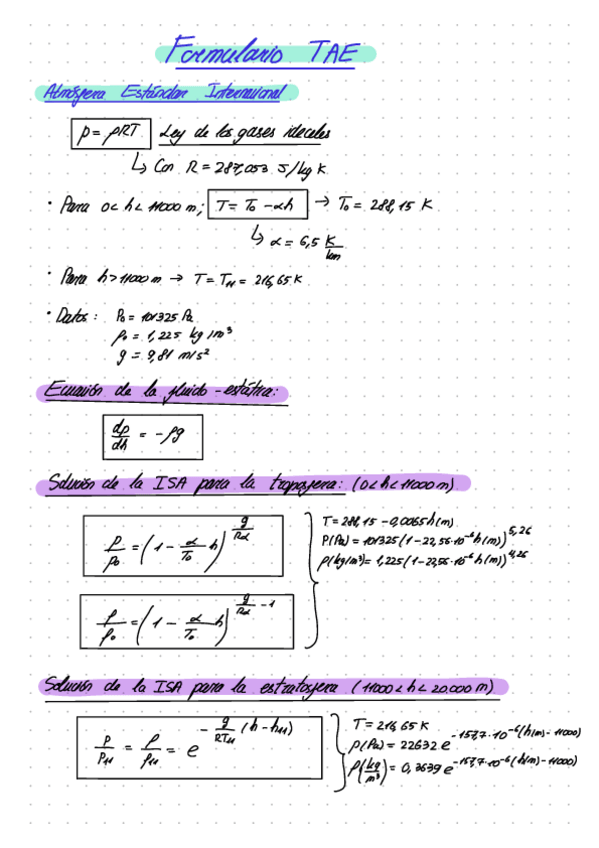 Formulario TAE
Atmósfera Estándar Internacional
p = ρRT Ley de los gases ideales
↳ Con R = 287,053 J/kg K
• Para 0 < h < 11000 m; T = T₀ - αh → T₀ = 288,15 K
↳ α = 6,5 K/km
• Para h > 11000 m → T = T₁₁ = 216,65 K
• Datos: P₀ = 101325 Pa
ρ₀ = 1,225 kg/m³
g = 9,81 m/s²
Ecuación de la fluido-estática:
dp/dh = -ρg
Solución de la ISA para la troposfera: (0 < h < 11000 m)
p/p₀ = (1 - α/T₀ h)^(g/Rα)
T = 288,15 - 0,0065 h(m)
P(Pa) = 101325 (1 - 22,56·10⁻⁶ h(m))^5,26
ρ(kg/m³) = 1,225 (1 - 22,56·10⁻⁶ h(m))^4,26
ρ/ρ₀ = (1 - α/T₀ h)^(g/Rα - 1)
Solución de la ISA para la estratosfera (11000 < h < 20.000 m)
p/p₁₁ = ρ/ρ₁₁ = e^(- g/RT₁₁ (h - h₁₁))
T = 216,65 K
p(Pa) = 22632 e^(-157,7·10⁻⁶ (h(m) - 11000))
ρ(kg/m³) = 0,3639 e^(-157,7·10⁻⁶ (h(m) - 11000))